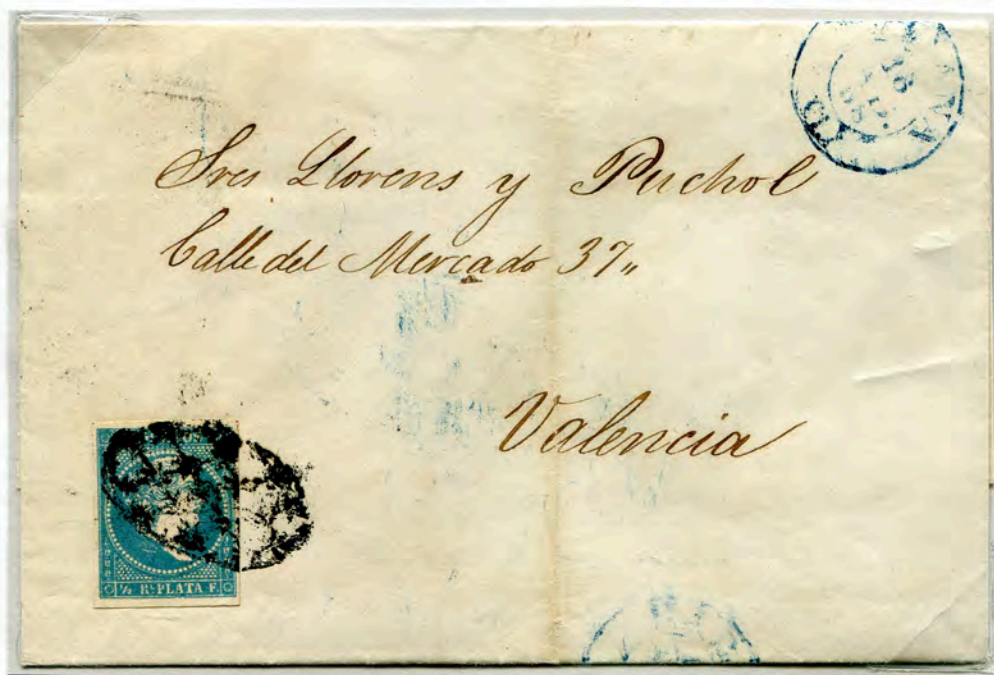 18
Sres Llorens y Puchol
Calle del Mercado 37,,
Valencia
½ Rl PLATA F.